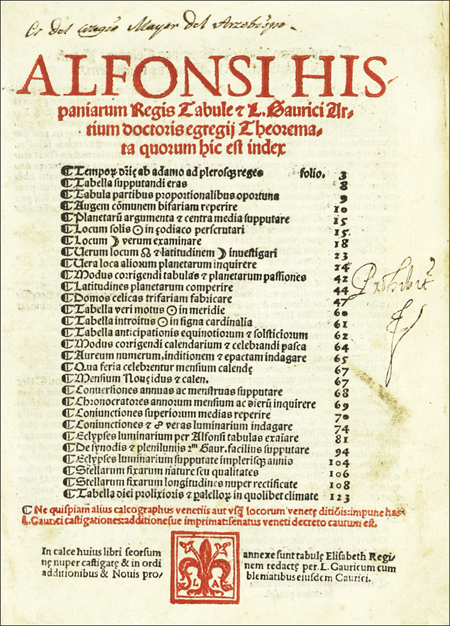 Es del colegio Mayor del Arzobispo.
ALFONSI HIS
paniarum Regis Tabule ⁊ L. Gaurici Ar-
tium doctoris egregij Theorema-
ta quorum hic est index
¶ Tempoꝝ ab adamo ad plerosqꝫ reges folio. 3
¶ Tabella supputandi eras 8
¶ Tabula partibus proportionalibus oportuna 9
¶ Augem cõmunem bifariam reperire 10
¶ Planetarũ argumenta ⁊ centra media supputare 15
¶ Locum solis ☉ in zodiaco perscrutari 15
¶ Locum ☽ verum examinare 18
¶ Verum locum ☊ ⁊ latitudinem ☽ inuestigari 23
¶ Vera loca aliorum planetarum inquirere 24
¶ Modus corrigendi tabulas ⁊ planetarum passiones 42
¶ Latitudines planetarum comperire 44
¶ Domos celicas trifariam fabricare 47
¶ Tabella veri motus ☉ in meridie 60
¶ Tabella introitus ☉ in signa cardinalia 61
¶ Tabella anticipationis equinotiorum ⁊ solsticiorum 62
¶ Modus corrigendi calendarium ⁊ celebrandi pasca 64
¶ Aureum numerum, inditionem ⁊ epactam indagare 65
¶ Qua feria celebrentur mensium calendę 67
¶ Mensium Nouę idus ⁊ calen. 67
¶ Conuersiones annuas ac menstruas supputare 68
¶ Chronocratores annorum mensium ac dierũ inquirere 69
¶ Coniunctiones superiorum medias reperire 70
¶ Coniunctiones ⁊ ☍ veras luminarium indagare 74
¶ Eclypses luminarium per Alfonsi tabulas exaiare 81
¶ De synodis ⁊ plenilunijs Gaur. facilius supputare 94
¶ Eclypses luminarium supputate in plerisqꝫ annis 104
¶ Stellarum fixarum nature seu qualitates 106
¶ Stellarum fixarum longitudines nuper rectificate 108
¶ Tabella diei prolixioris ⁊ in quolibet climate 123
Prohibit
¶ Ne quispiam alius calcographus venetiis aut vsqꝫ locorum venetę ditiõis: impune has
L. Gaurici castigationes: additionesue imprimat: senatus veneti decreto cautum est.
In calce huius libri seorsum annexe sunt tabulę Elisabeth Regi-
nę nuper castigatę & in ordi nem redactę per L. Gauricum cum
additionibus & Nouis pro- blematibus eiusdem Gaurici.
L A